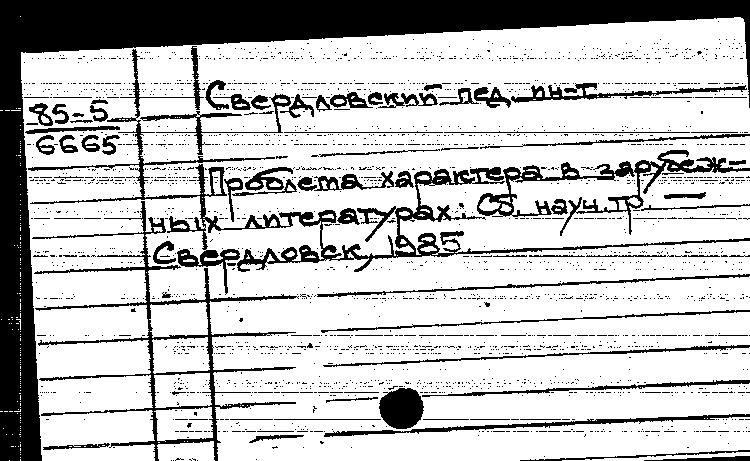 85-5
6665
Свердловский пед. ин-т
Проблема характера в зарубеж-
ных литературах: Сб. науч. тр. —
Свердловск, 1985.